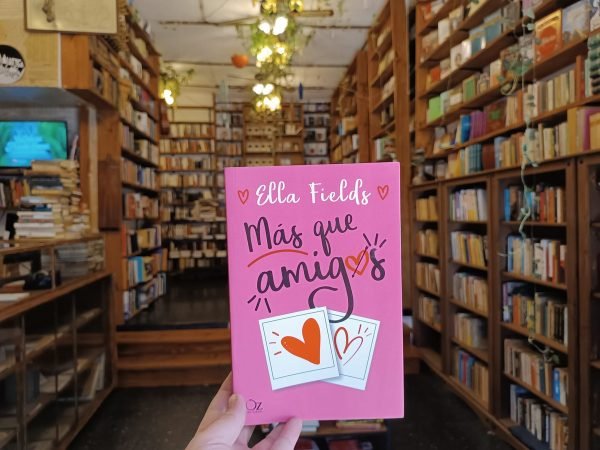 Ella Fields
Más que
amigos
Oz